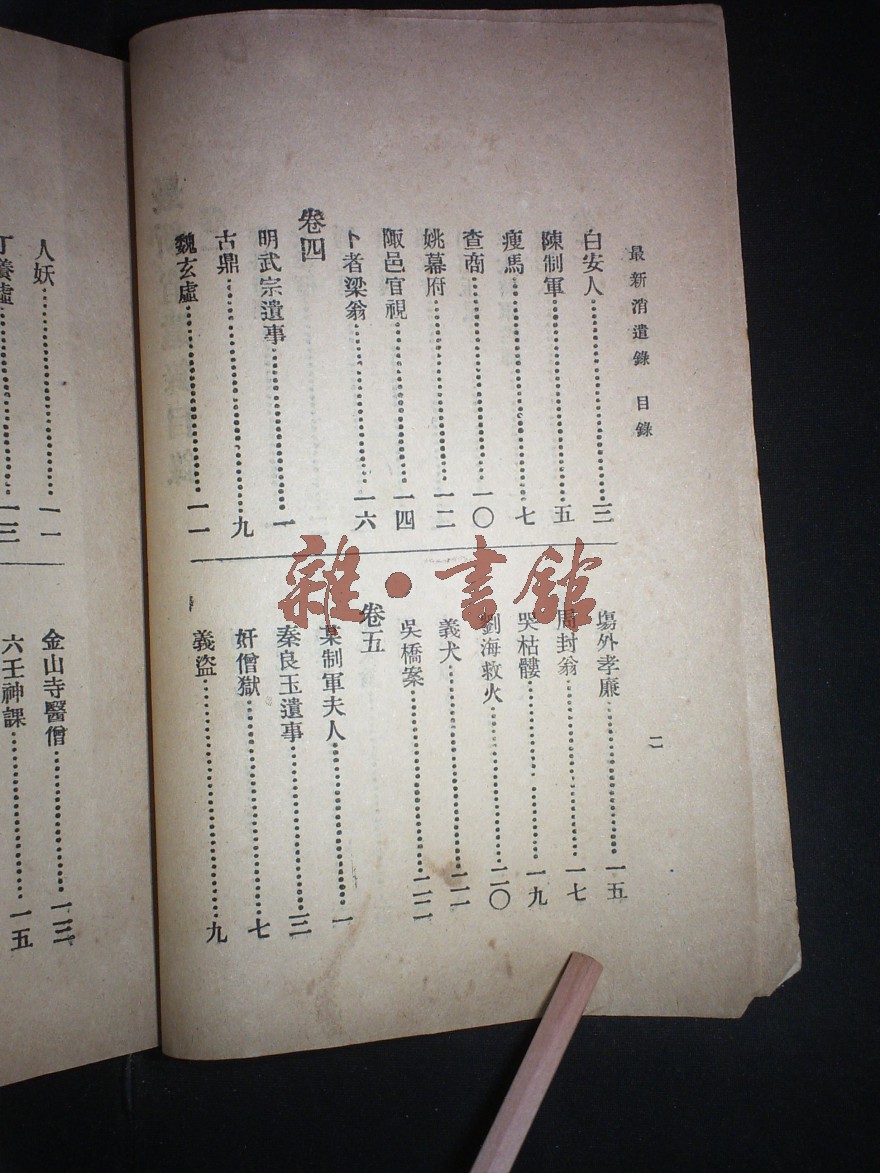 最新消遣錄 目錄
二
白安人三
陳制軍五
瘦馬七
查商一〇
姚幕府一二
陬邑官視一四
卜者梁翁一六
卷四
明武宗遺事一
古鼎九
魏玄虛一一
塲外孝廉一五
周封翁一七
哭枯髏一九
劉海救火二〇
義犬二一
吳橋案二二
卷五
某制軍夫人一
秦良玉遺事三
奸僧獄七
義盜九
人妖一一
丁養虛一三
金山寺醫僧一三
六壬神課一五
雜·書舘